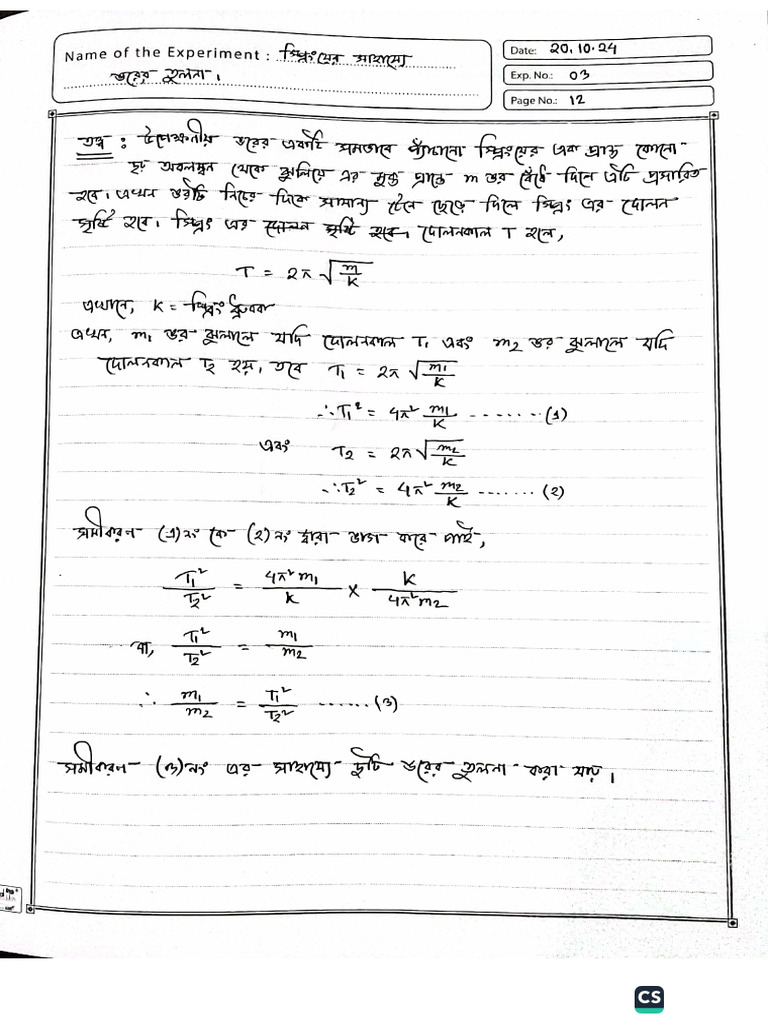 Name of the Experiment : স্প্রিংয়ের সাহায্যে
ভরের তুলনা।
Date: 20.10.24
Exp. No.: 03
Page No.: 12
তত্ত্ব : উপেক্ষণীয় ভরের একটি সমভাবে প্যাঁচানো স্প্রিংয়ের এক প্রান্ত কোনো
দৃঢ় অবলম্বন থেকে ঝুলিয়ে এর মুক্ত প্রান্তে m ভর বেঁধে দিলে এটি প্রসারিত
হবে। এখন ভরটি নিচের দিকে সামান্য টেনে ছেড়ে দিলে স্প্রিং এর দোলন
সৃষ্টি হবে। স্প্রিং এর দোলন সৃষ্টি হবে। দোলনকাল T হলে,
T = 2π √(m/K)
এখানে, K = স্প্রিং ধ্রুবক
এখন, m₁ ভর ঝুলালে যদি দোলনকাল T₁ এবং m₂ ভর ঝুলালে যদি
দোলনকাল T₂ হয়, তবে T₁ = 2π √(m₁/K)
∴ T₁² = 4π² m₁/K ------- (1)
এবং T₂ = 2π √(m₂/K)
∴ T₂² = 4π² m₂/K ....... (2)
সমীকরণ (১)নং কে (২)নং দ্বারা ভাগ করে পাই,
T₁²/T₂² = 4π²m₁/K × K/4π²m₂
বা, T₁²/T₂² = m₁/m₂
∴ m₁/m₂ = T₁²/T₂² ...... (৩)
সমীকরণ (৩)নং এর সাহায্যে দুটি ভরের তুলনা করা যায়।
CS